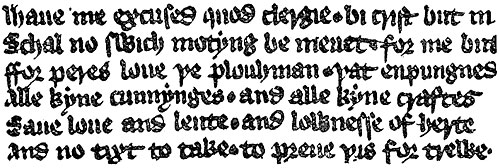 Ihaue me excused quod clergie · bi crist but in
Schal no swich motyng be meuet · for me but
ffor peres loue þe plouhman · þat enpungned
Alle kyne cunnynges · and alle kyne craftes
Saue loue and leute · and lowenesse of herte
And no tixt to take · to preue þis for trewe ·